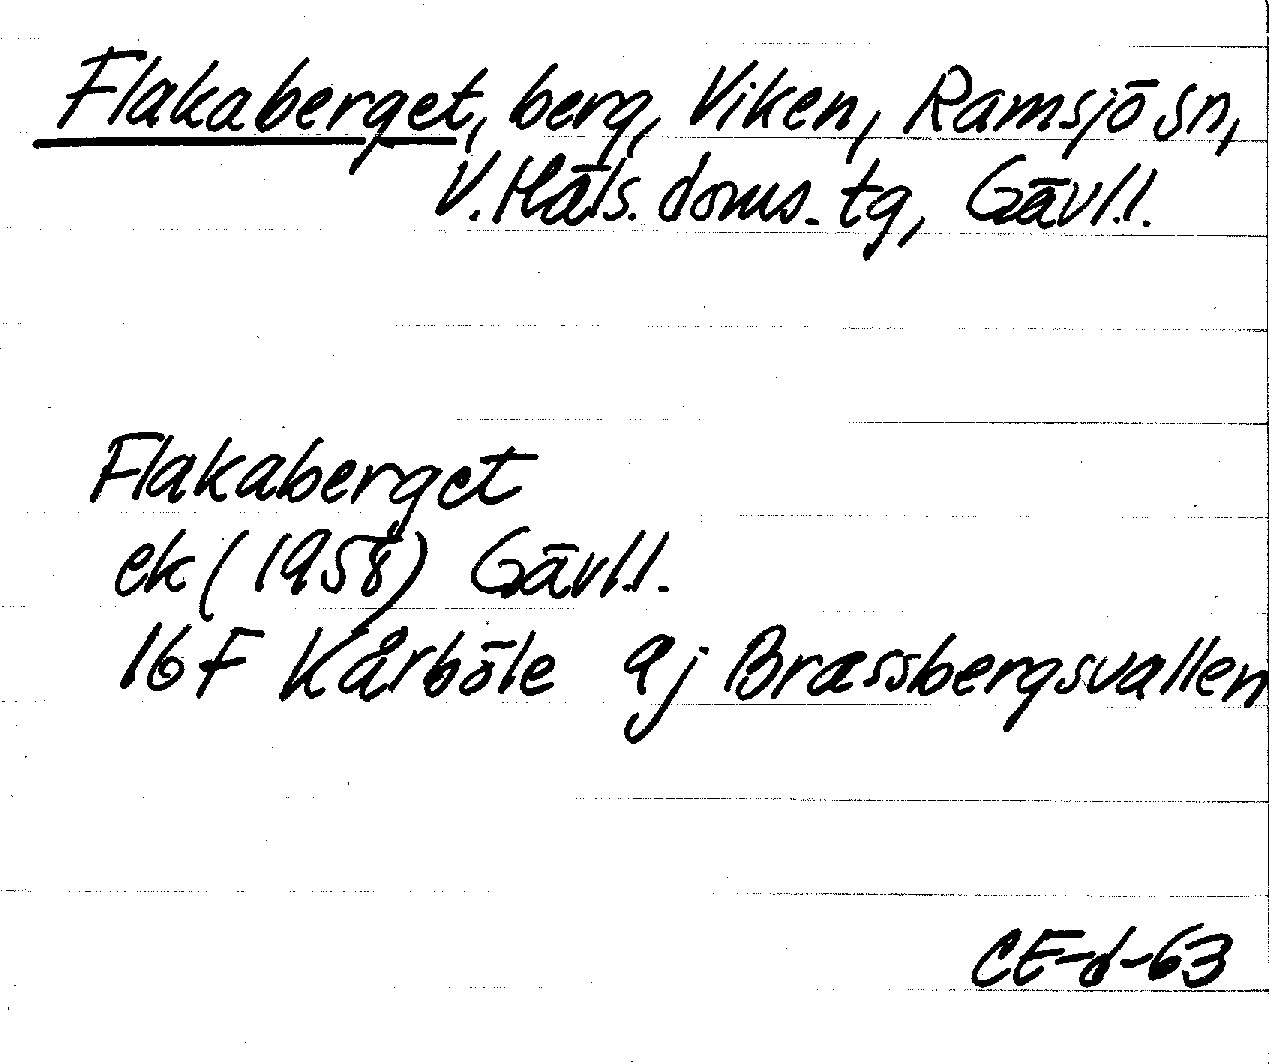 Flakaberget, berg, Viken, Ramsjö sn,
V. Häls. doms. tg, Gävl.l.
Flakaberget
ek (1958) Gävl.l.
16F Kårböle 9j Brassbergsvallen
CE-d-63